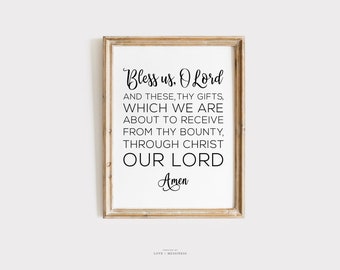 Bless us, O Lord
AND THESE, THY GIFTS,
WHICH WE ARE
ABOUT TO RECEIVE
FROM THY BOUNTY,
THROUGH CHRIST
OUR LORD
Amen